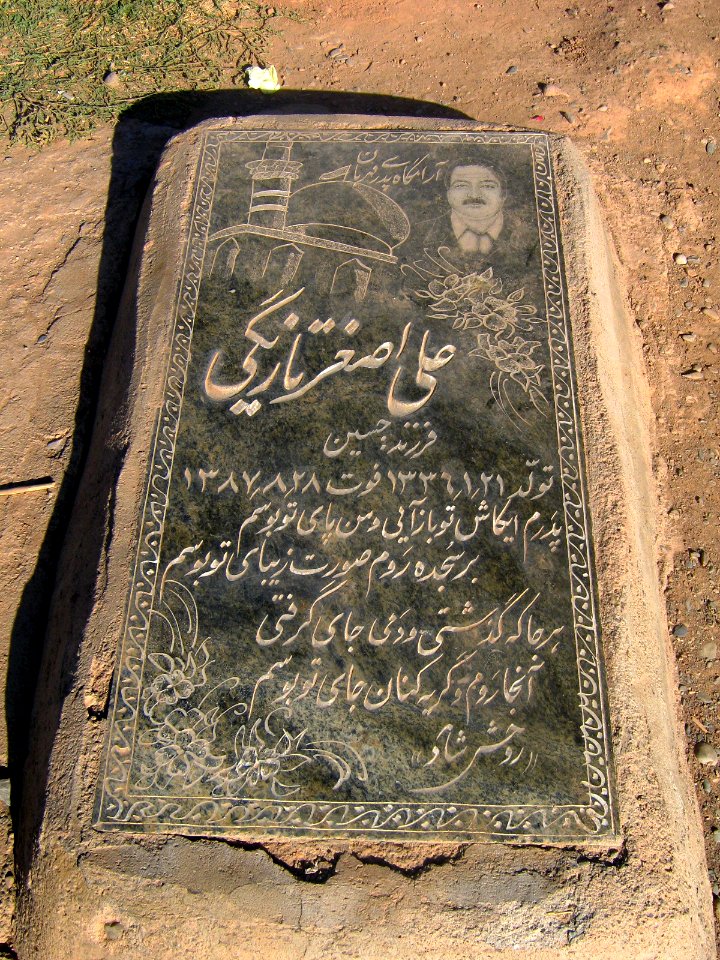 آرامگاه پدری مهربان
علی اصغر نازیکی
فرزند: حسین
تولّد ۱۳۳۶٫۱٫۲۱ فوت ۱۳۸۷٫۸٫۲۸
پدرم ایکاش تو بازآیی و من پای تو بوسم
بر سجده روم صورت زیبای تو بوسم
هر جا که گذشتی و دمی جای گرفتی
آنجا روم و گریه کنان جای تو بوسم
«روحش شاد»